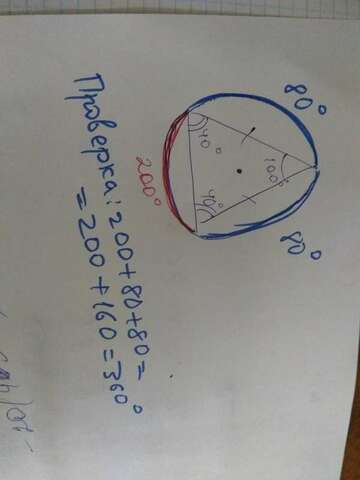 80°
100°
40°
40°
80°
200°
Проверка: 200+80+80=
=200+160=360°